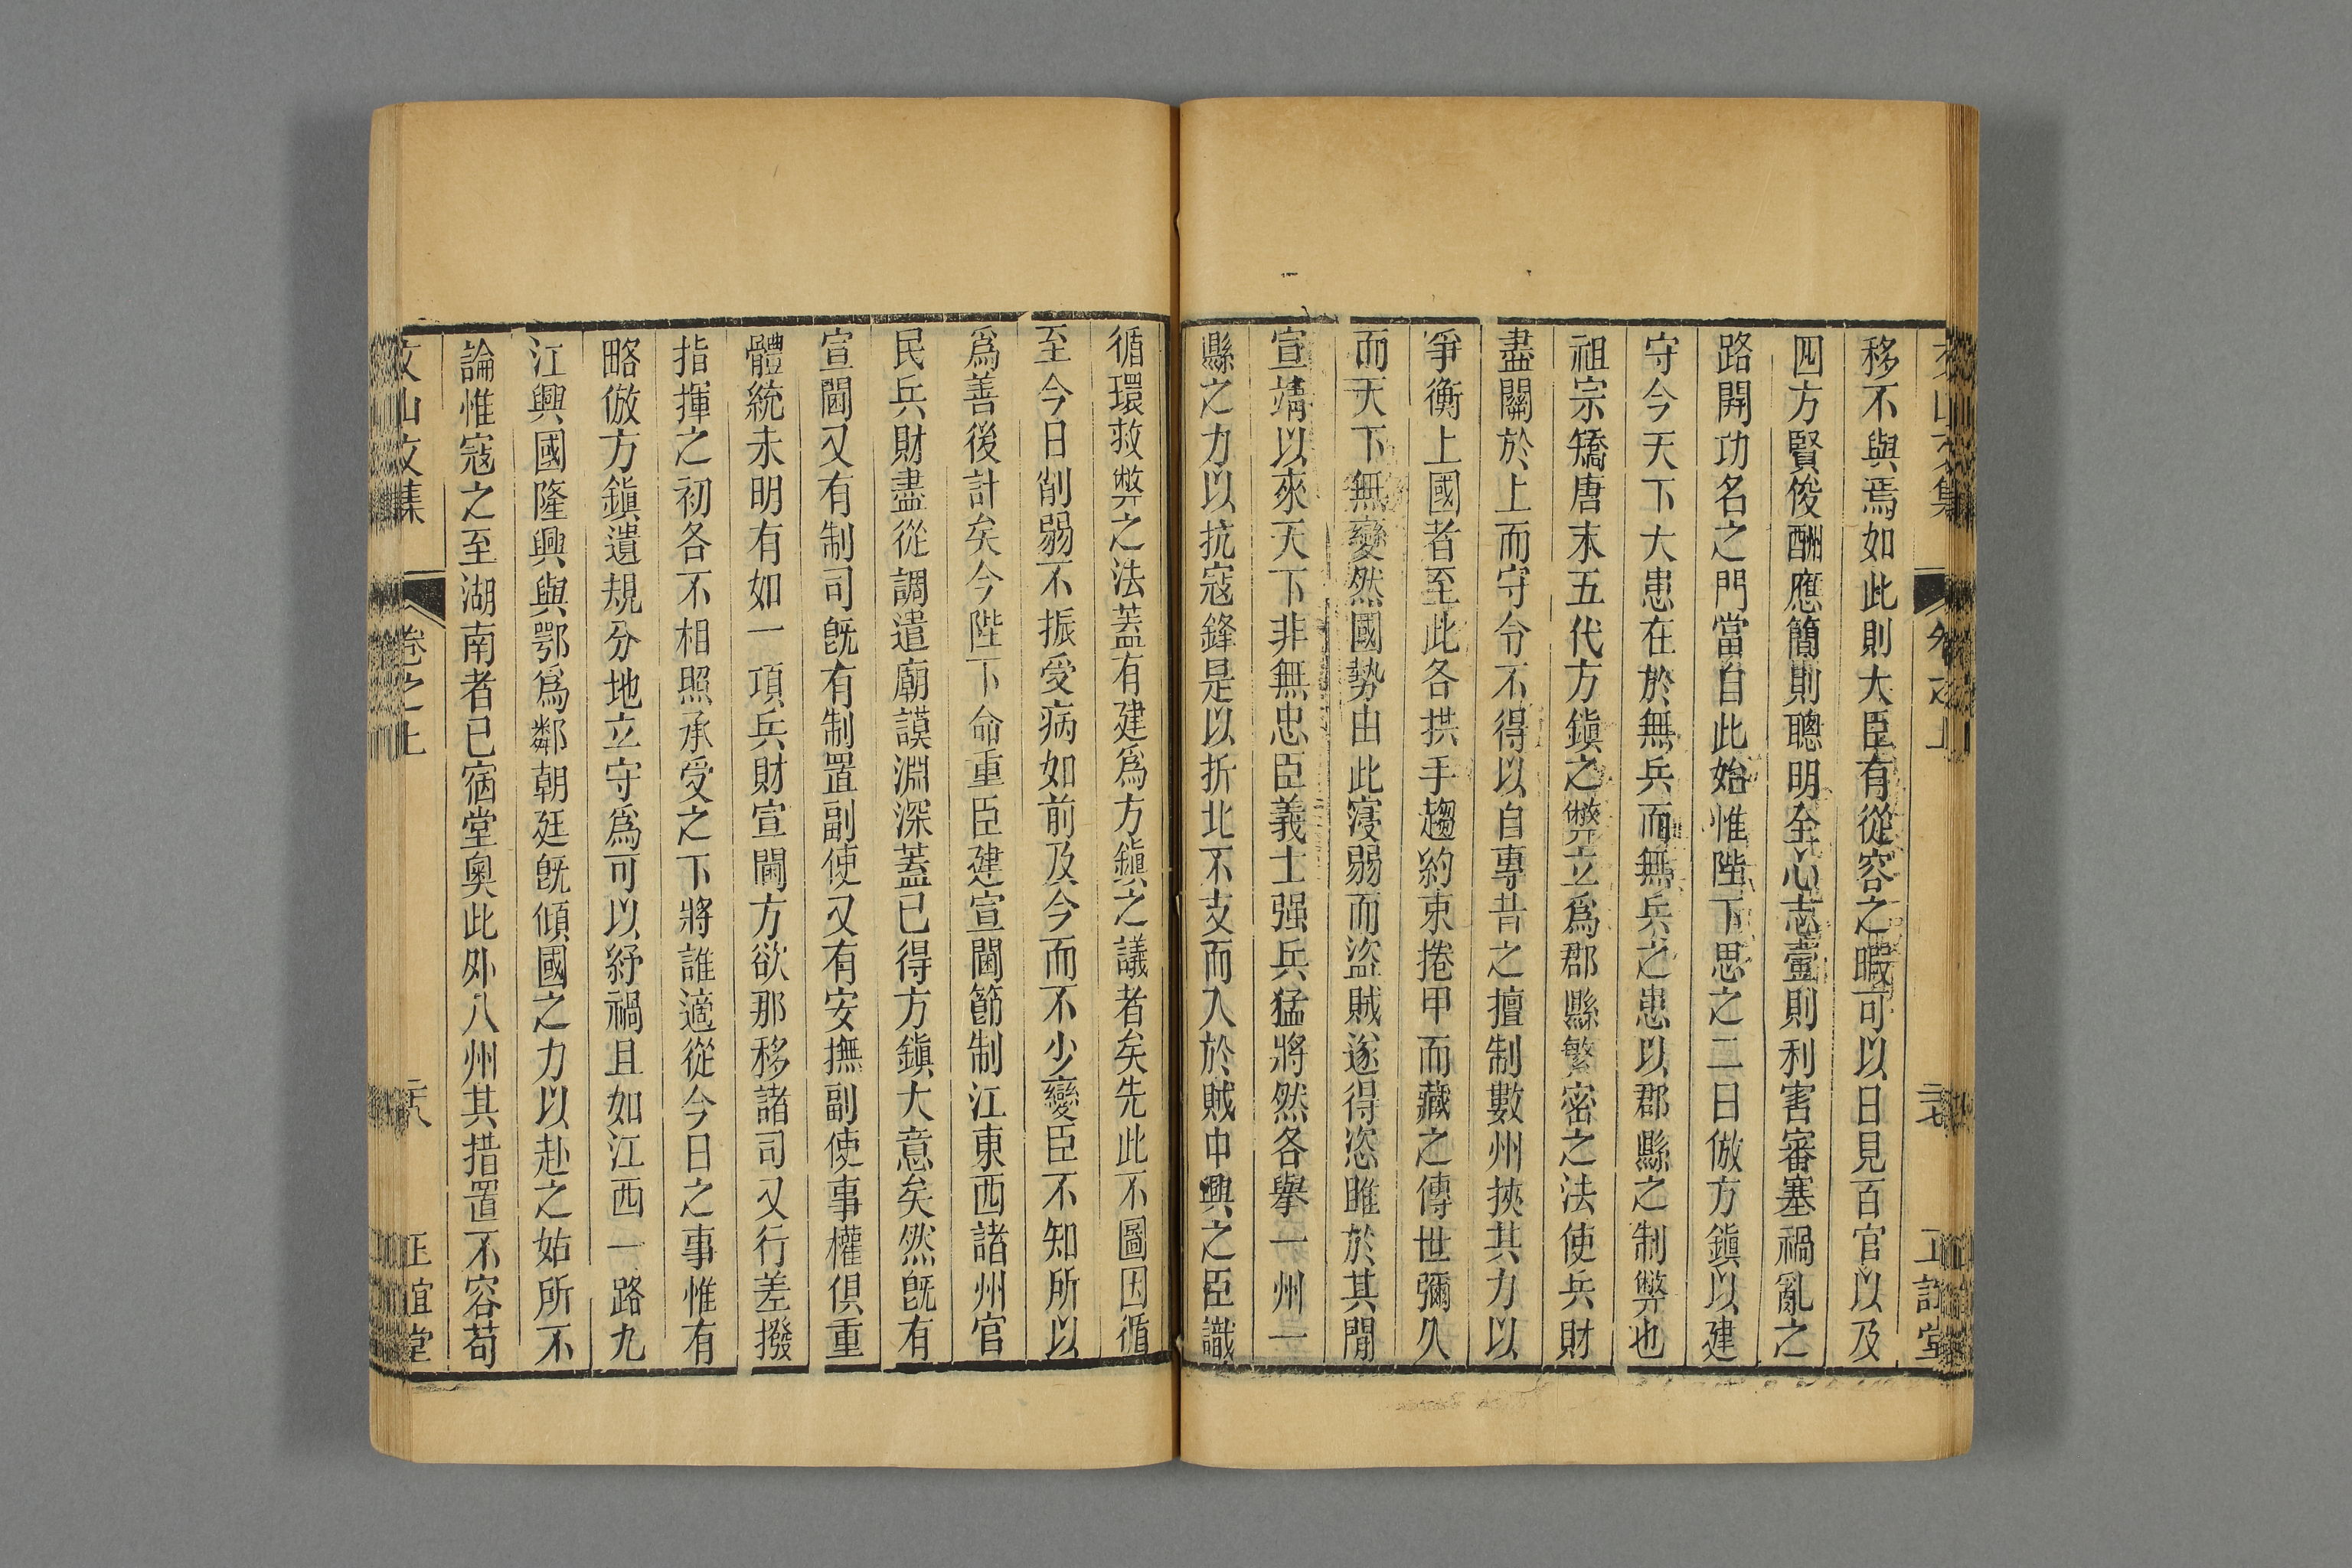 移不與焉如此則大臣有從容之暇可以日見百官以及
四方賢俊酬應簡則聰明全心志壹則利害審塞禍亂之
路開功名之門當自此始惟陛下思之二曰倣方鎭以建
守今天下大患在於無兵而無兵之患以郡縣之制弊也
祖宗矯唐末五代方鎭之弊立爲郡縣繁密之法使兵財
盡關於上而守令不得以自專昔之擅制數州挾其力以
爭衡上國者至此各拱手趨約束捲甲而藏之傳世彌久
而天下無變然國勢由此寖弱而盜賊遂得恣睢於其閒
宣靖以來天下非無忠臣義士强兵猛將然各舉一州一
縣之力以抗寇鋒是以折北不支而入於賊中興之臣識
循環救弊之法蓋有建爲方鎭之議者矣先此不圖因循
至今日削弱不振受病如前及今而不少變臣不知所以
爲善後計矣今陛下命重臣建宣閫節制江東西諸州官
民兵財盡從調遣廟謨淵深蓋已得方鎭大意矣然旣有
宣閫又有制司旣有制置副使又有安撫副使事權俱重
體統未明有如一項兵財宣閫方欲那移諸司又行差撥
指揮之初各不相照承受之下將誰適從今日之事惟有
略倣方鎭遺規分地立守爲可以紓禍且如江西一路九
江興國隆興與鄂爲鄰朝廷旣傾國之力以赴之姑所不
論惟寇之至湖南者已宿堂奧此外八州其措置不容苟
文山文集
卷之上
正誼堂